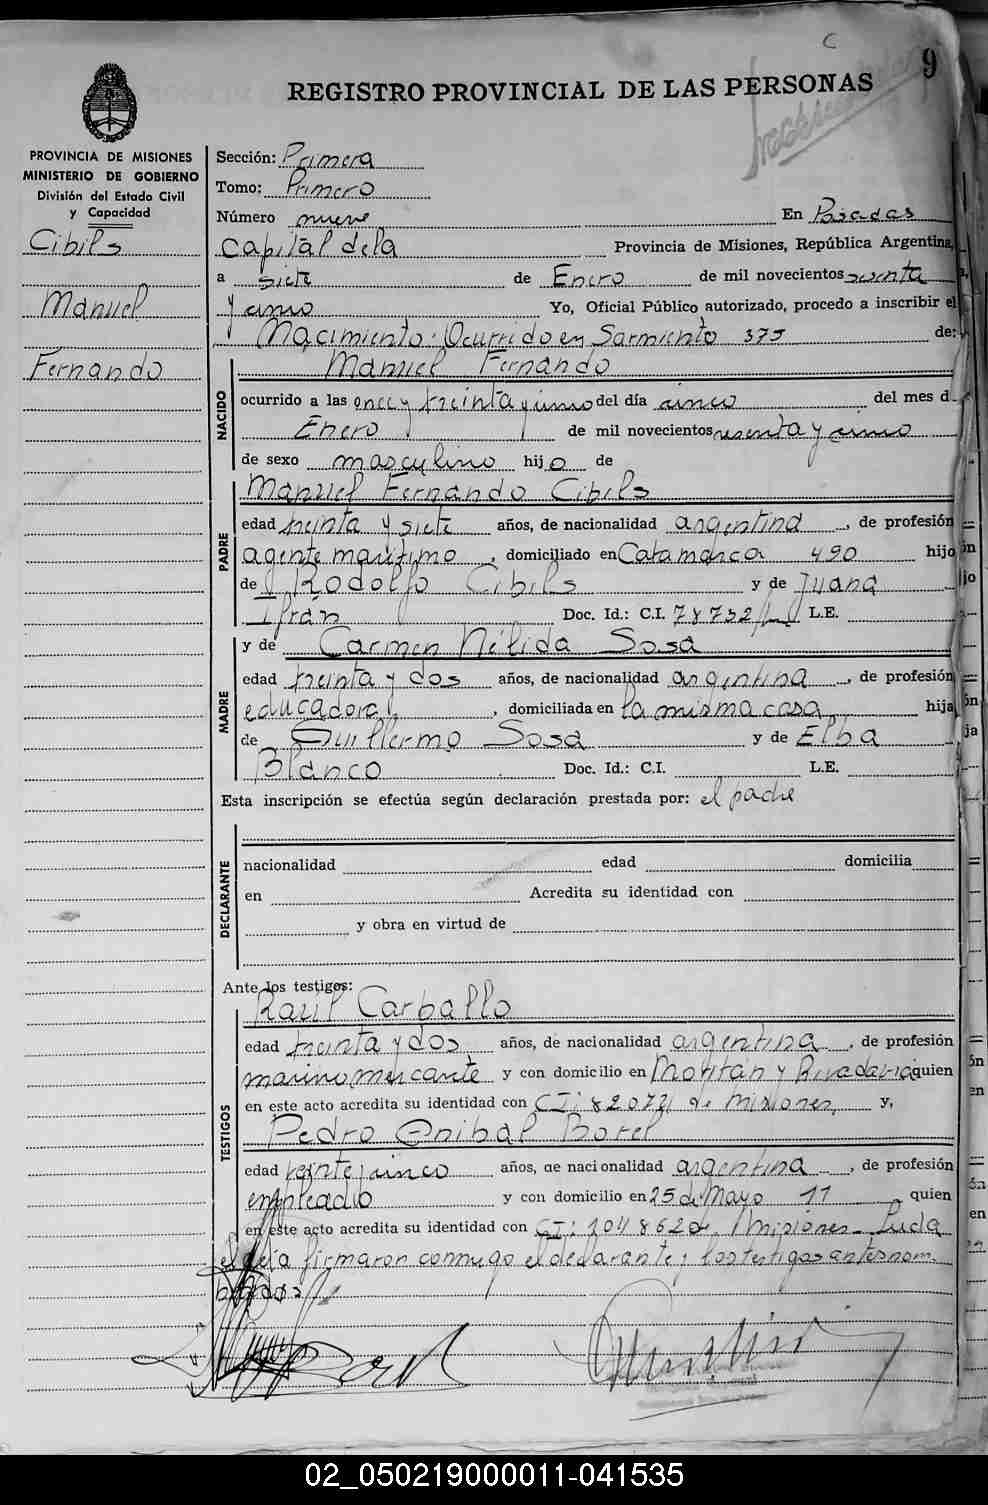 9
REGISTRO PROVINCIAL DE LAS PERSONAS
PROVINCIA DE MISIONES
MINISTERIO DE GOBIERNO
División del Estado Civil
y Capacidad
Cibils
Manuel
Fernando
Sección: Primera
Tomo: Primero
Número nueve En Posadas
Capital de la Provincia de Misiones, República Argentina,
a siete de Enero de mil novecientos sesenta
y uno Yo, Oficial Público autorizado, procedo a inscribir el
Nacimiento Ocurrido en Sarmiento 375 de:
NACIDO
Manuel Fernando
ocurrido a las once y treinta y uno del día cinco del mes d
Enero de mil novecientos sesenta y uno
de sexo masculino hijo de
PADRE
Manuel Fernando Cibils
edad treinta y siete años, de nacionalidad argentina, de profesión
agente marítimo, domiciliado en Catamarca 490 hijo
de Rodolfo Cibils y de Juana
Ifrán Doc. Id.: C.I. 78732 L.E.
y de Carmen Nélida Sosa
MADRE
edad treinta y dos años, de nacionalidad argentina, de profesión
educadora, domiciliada en la misma casa hija
de Guillermo Sosa y de Elba
Blanco Doc. Id.: C.I. L.E.
Esta inscripción se efectúa según declaración prestada por: el padre
DECLARANTE
nacionalidad edad domicilia
en Acredita su identidad con
y obra en virtud de
Ante los testigos:
TESTIGOS
Raúl Carballo
edad treinta y dos años, de nacionalidad argentina, de profesión
marino mercante y con domicilio en y Rivadavia quien
en este acto acredita su identidad con CI: 82072 de Misiones, y,
Pedro Anibal Borel
edad veinte cinco años, de nacionalidad argentina, de profesión
empleado y con domicilio en 25 de Mayo 11 quien
en este acto acredita su identidad con CI: 104862 de Misiones
el acta firmaron conmigo el declarante y los testigos antes nom
brados
02_050219000011-041535